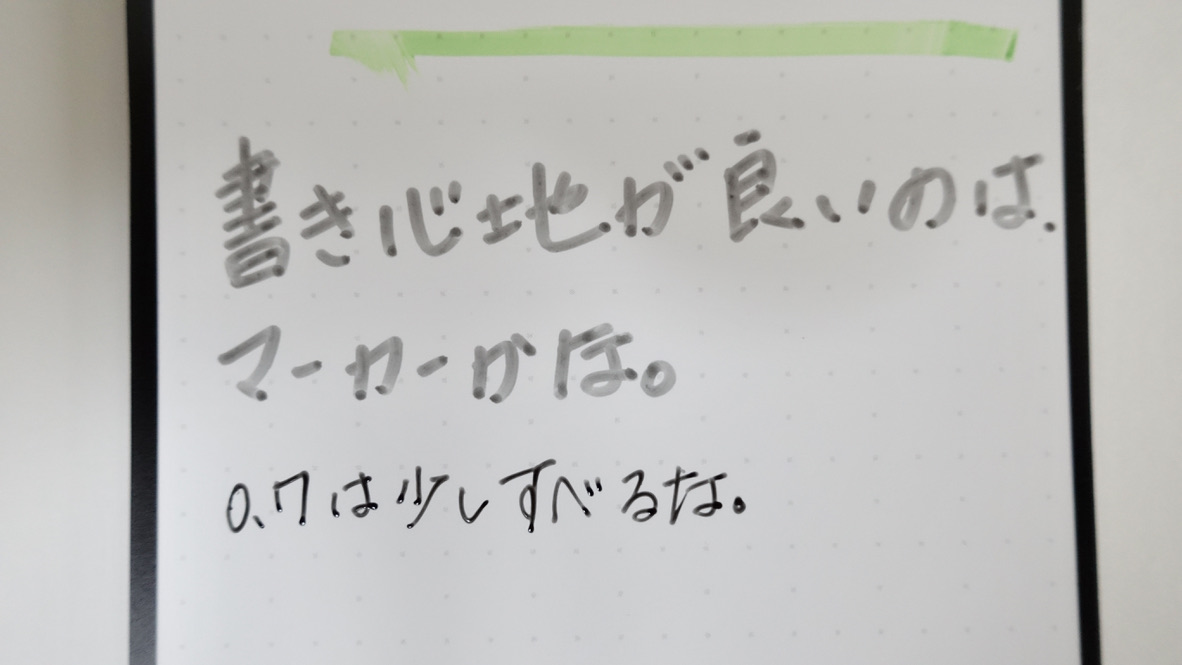 書き心地が良いのは、
マーカーかな。
0.7は少しすべるな。